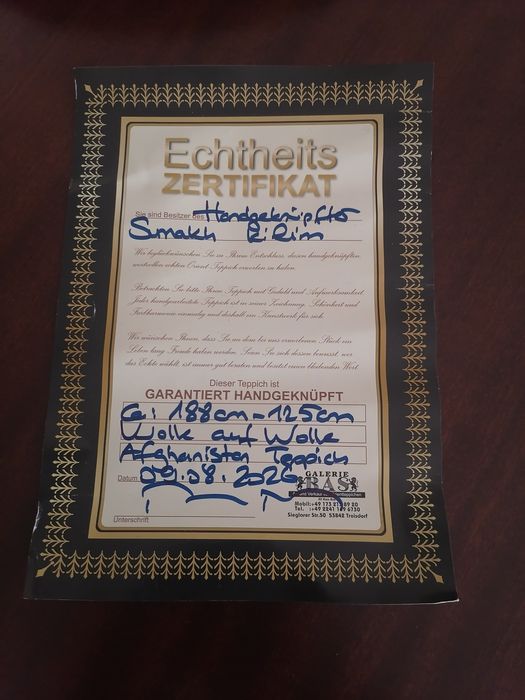 Echtheits
ZERTIFIKAT
Sie sind Besitzer des Handgeknüpfter
Smakh Kilim
Wir beglückwünschen Sie zu Ihrem Entschluss, diesen handgeknüpften,
wertvollen echten Orient Teppich erworben zu haben.
Betrachten Sie bitte Ihren Teppich mit Geduld und Aufmerksamkeit.
Jeder handgearbeitete Teppich ist in seiner Zeichnung, Schönheit und
Farbharmonie einmalig und deshalb ein Kunstwerk für sich.
Wir wünschen Ihnen, dass Sie an dem bei uns erworbenen Stück ein
Leben lang Freude haben werden. Seien Sie sich dessen bewusst, wer
das Echte wählt, ist immer gut beraten und besitzt einen bleibenden Wert.
Dieser Teppich ist
GARANTIERT HANDGEKNÜPFT
Ca: 188cm-125cm
Wolle auf Wolle
Afghanistan Teppich
Datum 09.08.2026
GALERIE
RAS
und Verkauf
Sieglarer Str.50 53842 Troisdorf
Unterschrift